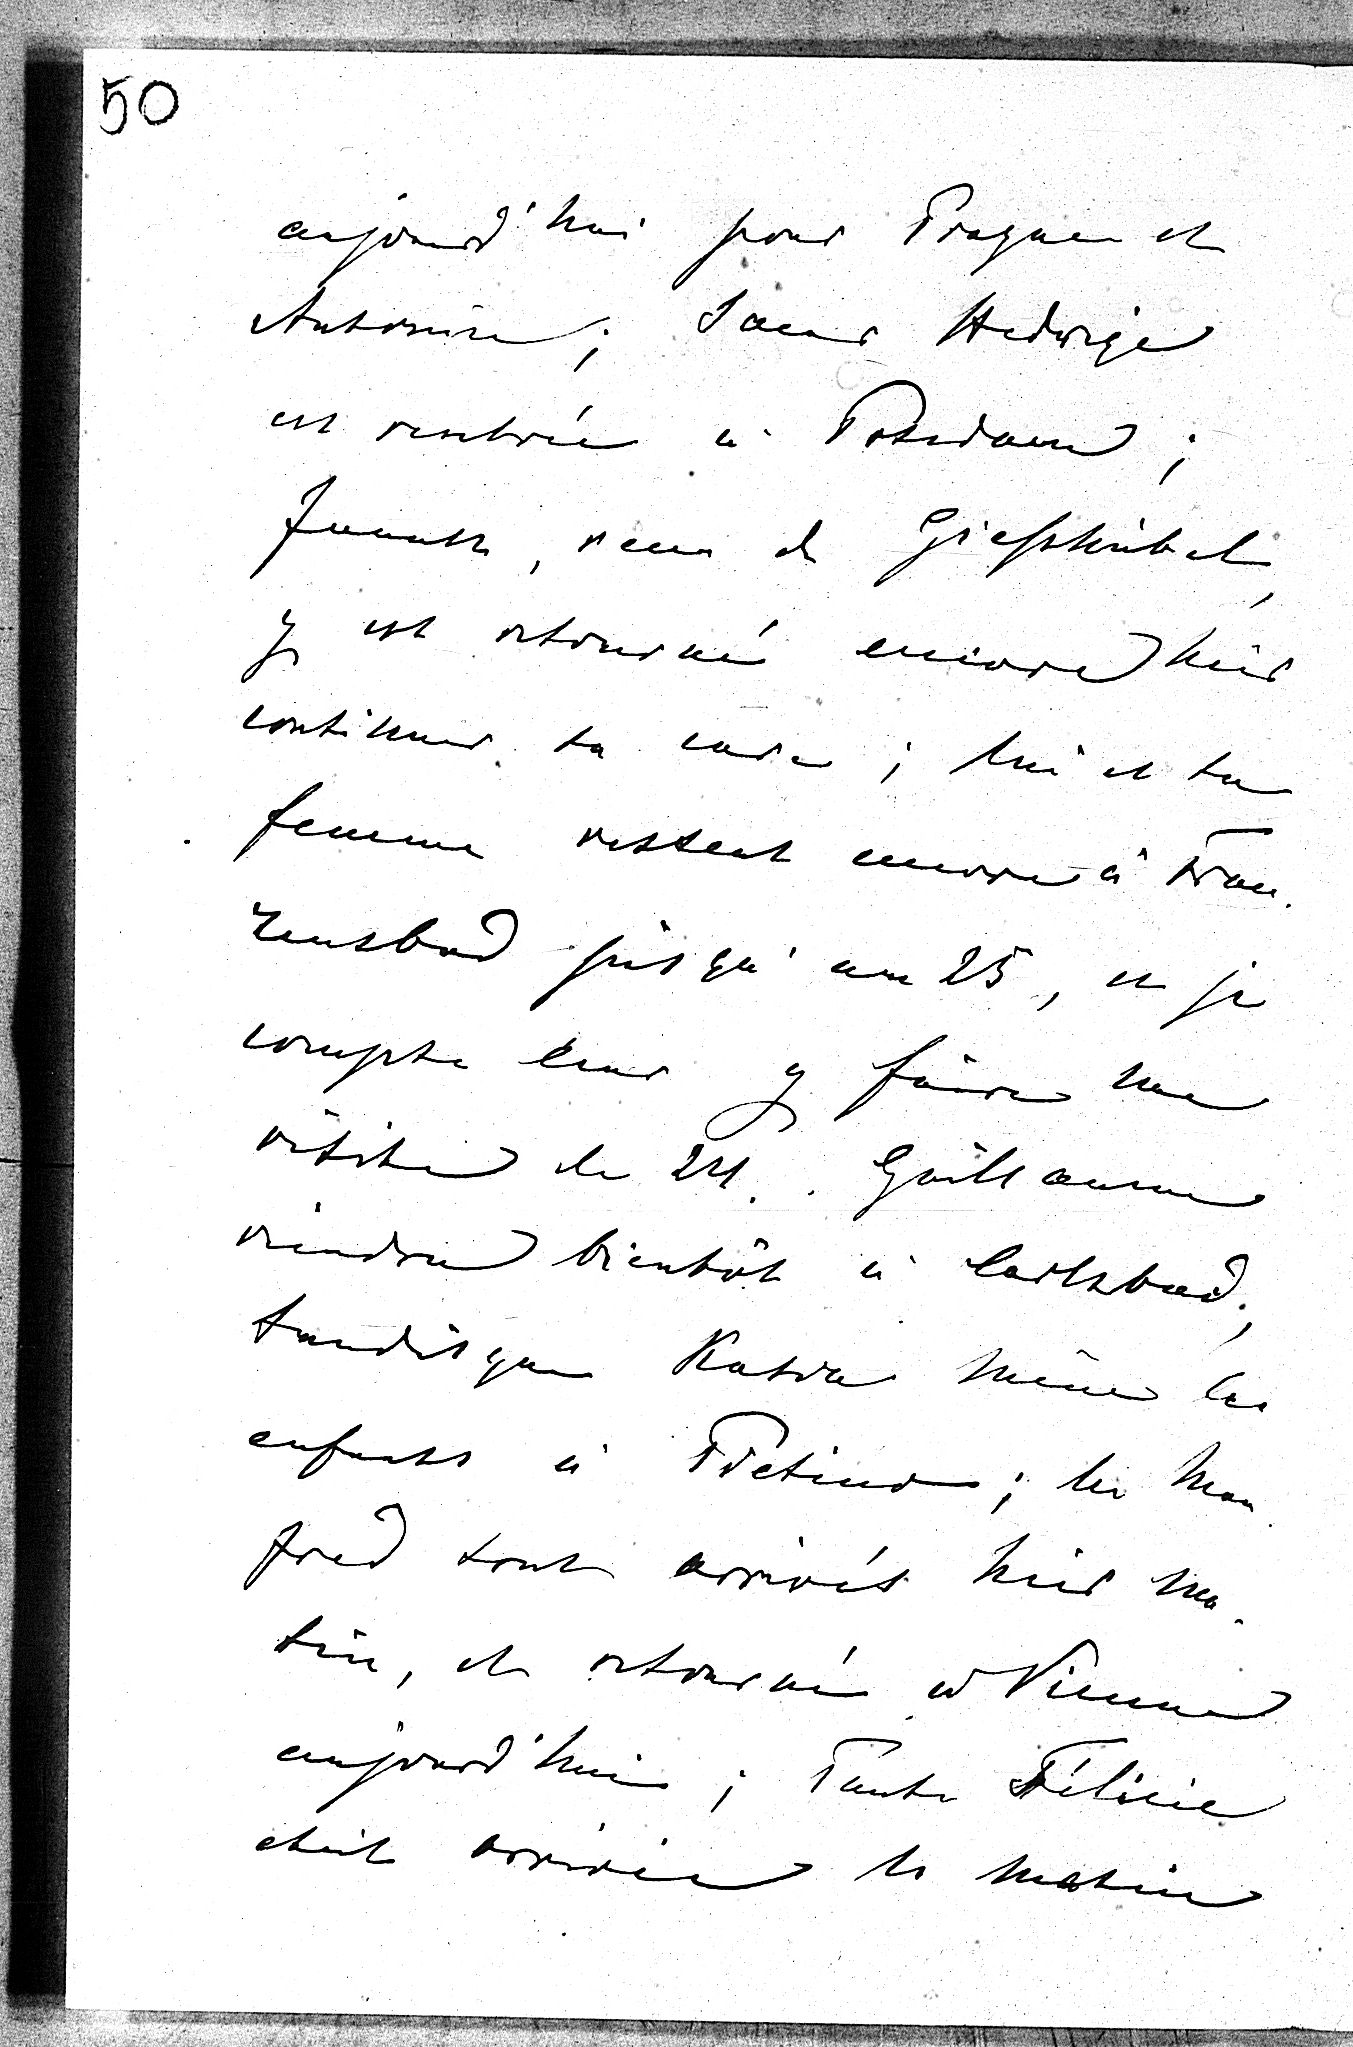 50
aujourd'hui pour Prague et
Antonin; Soeur Hedwige
est rentrée à Potsdam;
, venu de Giesshübel,
y est retourné encore hier
continuer sa cure; lui et sa
femme restent encore à Fran-
zensbad jusqu'au 25, et je
compte leur y faire une
visite le 24. Guillaume
viendra bientôt à Carlsbad,
tandisque Katra mène les
enfants à ; les Man-
fred sont arrivés hier ma-
tin, et retourné à Vienne
aujourd'hui; Tante Félicie
était arrivée le matin